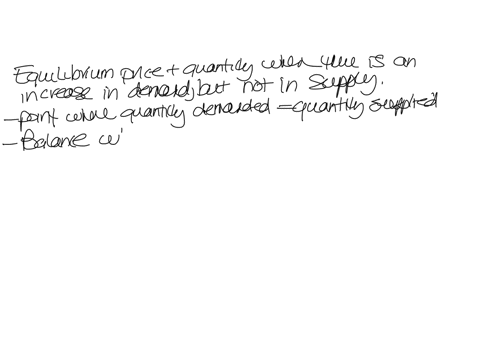 Equilibrium price + quantity when there is an
increase in demand, but not in supply.
- point where quantity demanded = quantity supplied
- Balance w